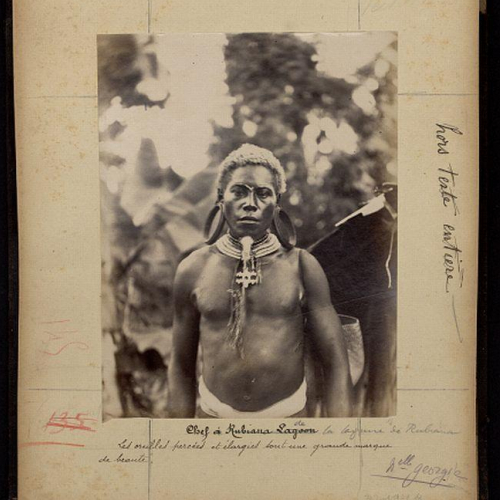 hors texte entière
145
135
Chef à Rubiana Lagoon de la lagune de Rubiana
Les oreilles percées et élargies sont une grande marque
de beauté.
Nlle georgie